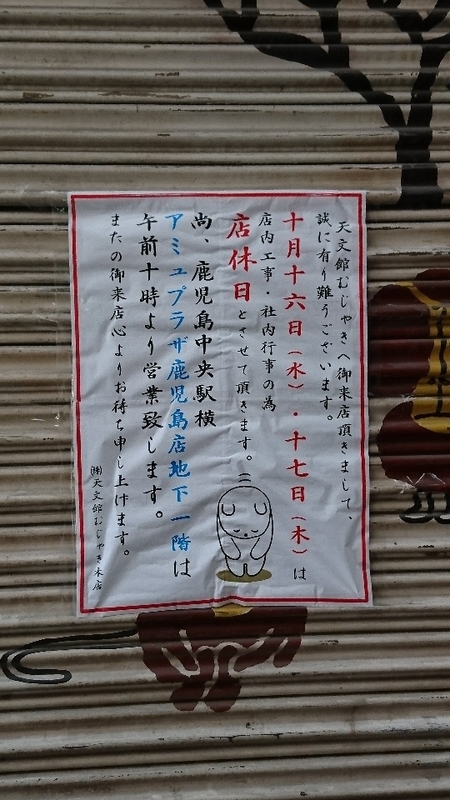 天文館むじゃきへ御来店頂きまして、
誠に有り難うございます。
十月十六日(水)・十七日(木)は
店内工事・社内行事の為
店休日とさせて頂きます。
尚、鹿児島中央駅横
アミュプラザ鹿児島店地下一階は
午前十時より営業致します。
またの御来店心よりお待ち申し上げます。
㈱天文館むじゃき本店